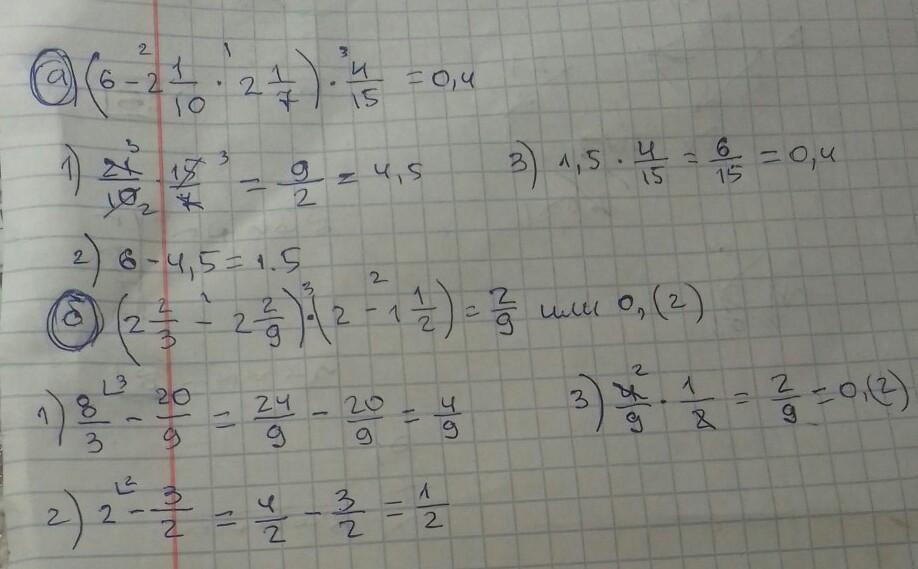 а) (6 - 2 1/10 · 2 1/7) · 4/15 = 0,4
1) 21/10 · 15/7 = 9/2 = 4,5
3) 1,5 · 4/15 = 6/15 = 0,4
2) 6 - 4,5 = 1.5
б) (2 2/3 - 2 2/9) · (2 - 1 1/2) = 2/9 или 0,(2)
1) 8/3 - 20/9 = 24/9 - 20/9 = 4/9
3) 4/9 · 1/2 = 2/9 = 0,(2)
2) 2 - 3/2 = 4/2 - 3/2 = 1/2